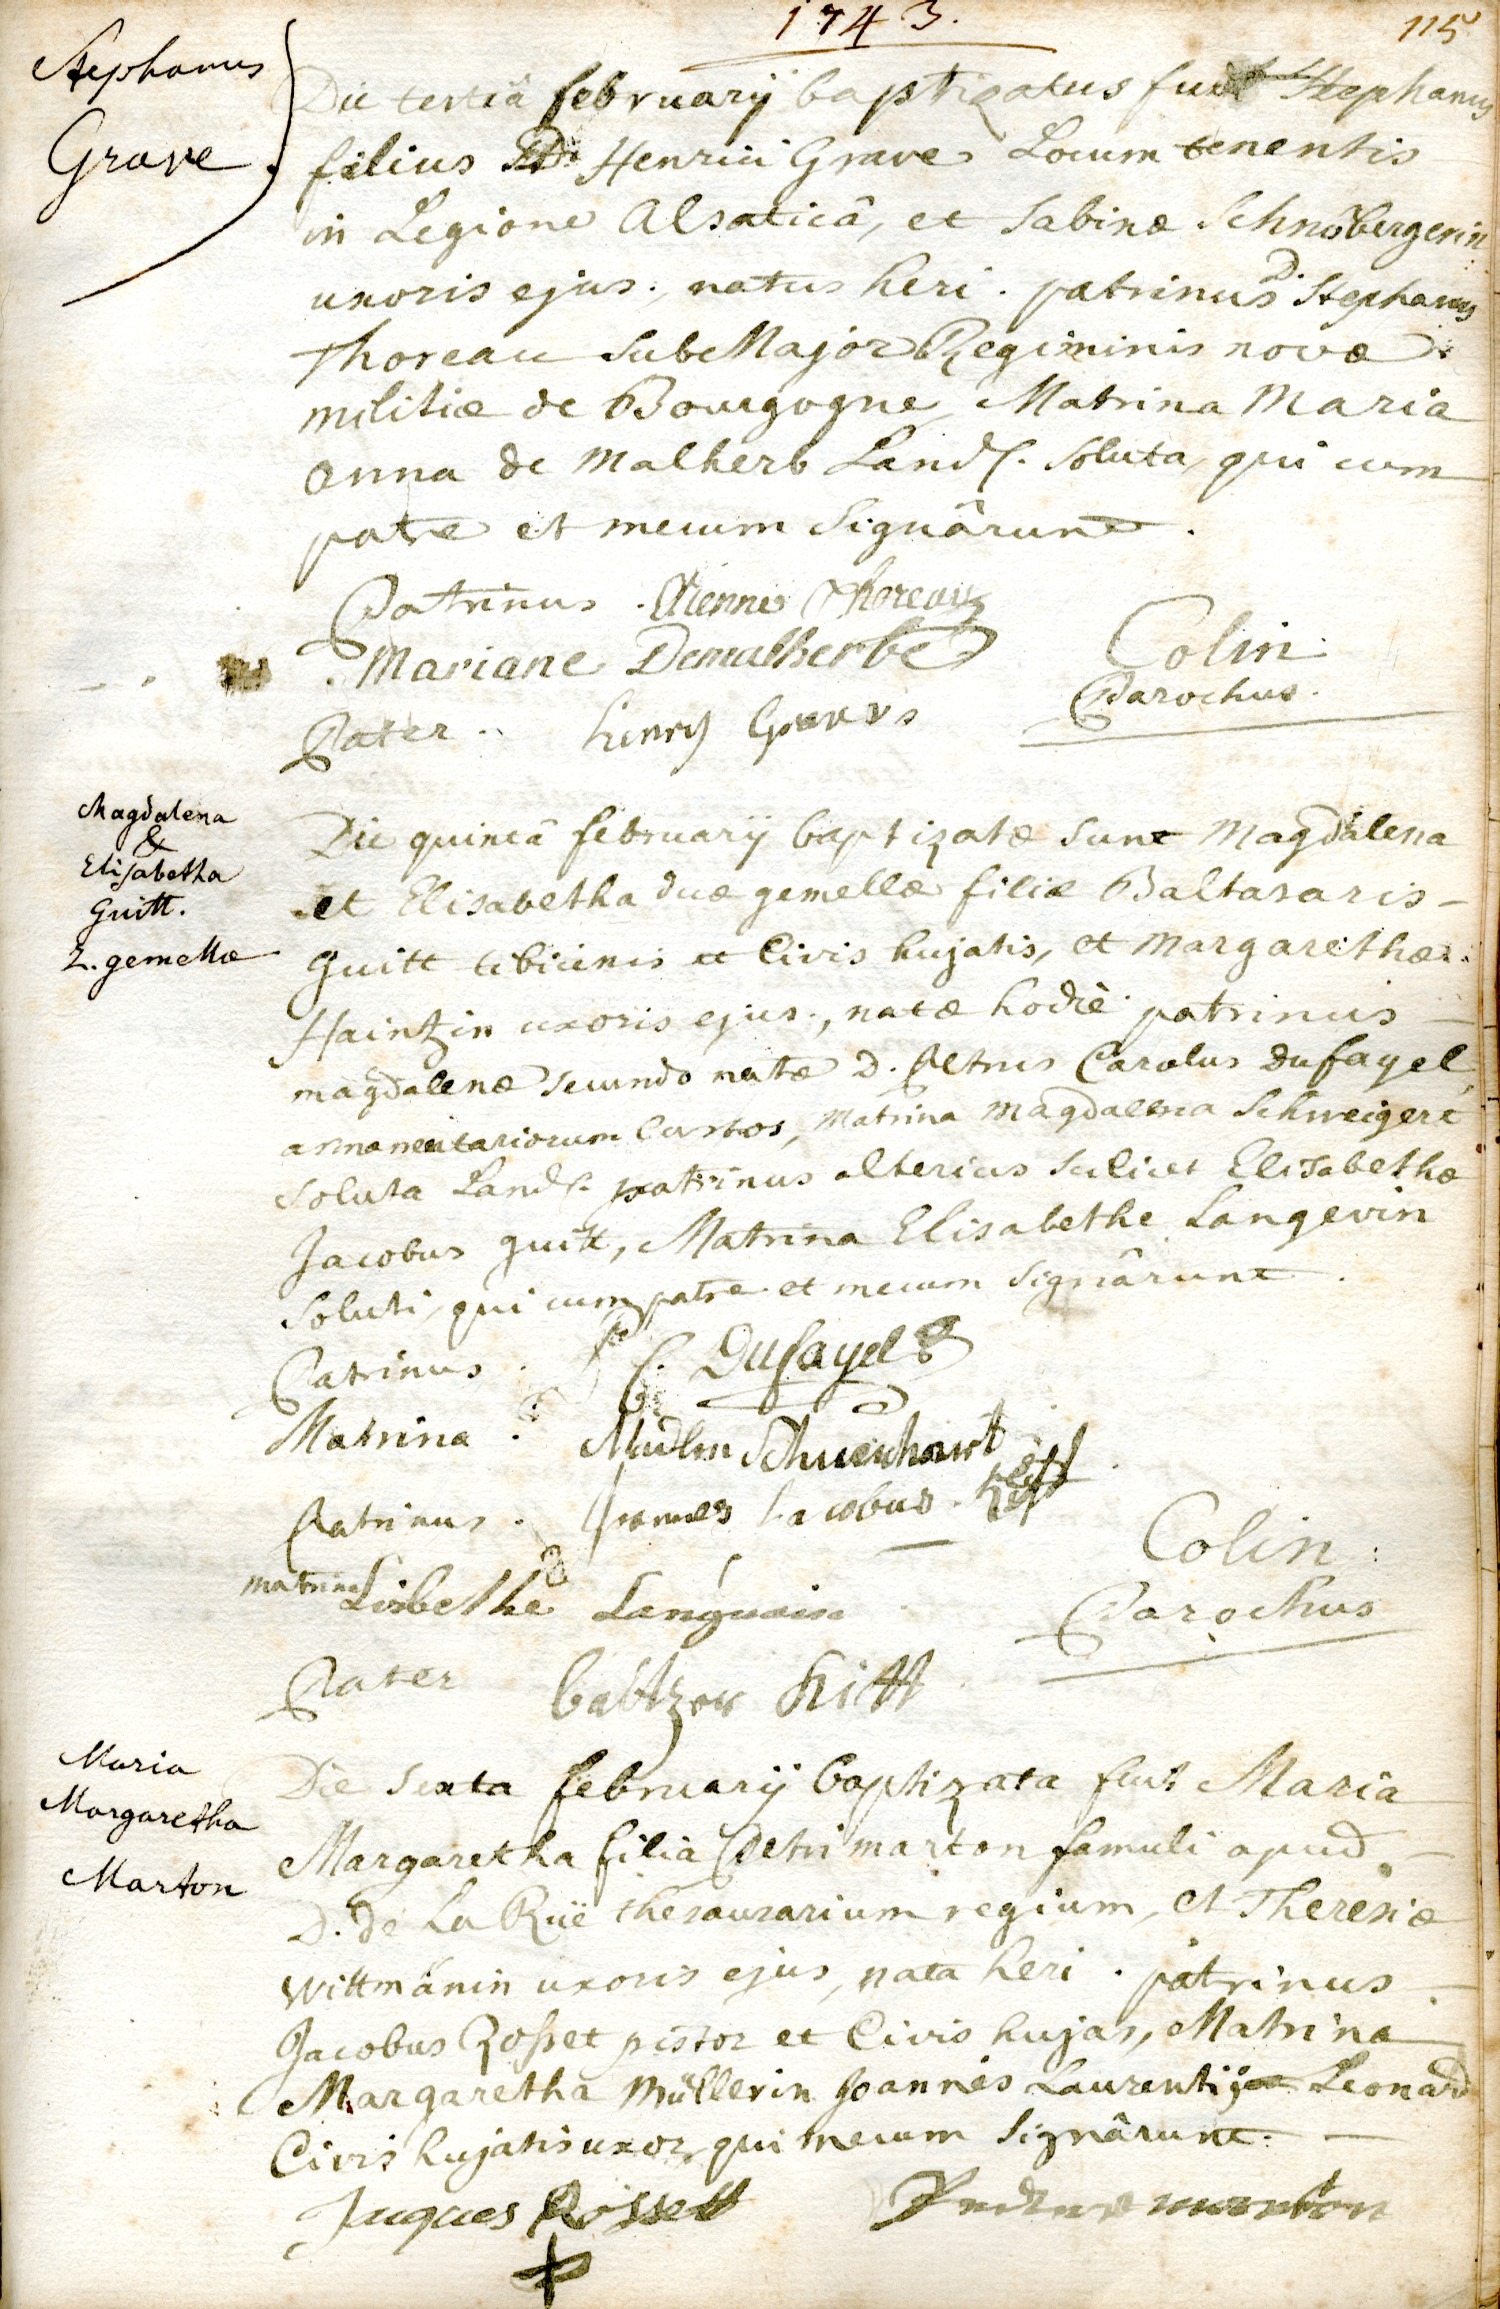 1743.
115
Stephanus
Grave
Die tertiâ februarÿ baptizatus fuit Stephanus
filius D. Henrici Grave Locum tenentis
in Legione Alsaticâ, et Sabinæ Schnöbergerin
uxoris ejus., natus heri. patrinus D. Stephanus
Thoreau SubMajor Regiminis novæ
militiæ de Bourgogne, Matrina Maria
Anna de Malherb Land. soluta, qui cum
patre et mecum Signârunt.
Patrinus. Etienne Thoreau
Mariane Demalherbe
Colin
Parochus.
Pater.. henry Graves
Magdalena
&
Elisabetha
Guitt.
2. gemellæ
Die quintâ februarÿ baptizatæ sunt Magdalena
et Elisabetha duæ gemellæ filiæ Baltasaris
Guitt tibicinis et Civis hujatis, et Margarethæ
Haintzin uxoris ejus., natæ hodiè patrinus
magdalenæ secundo natæ D. Petrus Carolus dufayel
armamentariorum Custos, Matrina Magdalena Schweigert
soluta Land. patrinus alterius scilicet Elisabethæ
Jacobus guitt, Matrina Elisabethe Langevin
soluti, qui cum patre et mecum Signârunt.
Patrinus. P. C. Dufayel
Matrina.
Patrinus. Jacobus
matrina Lisbethe
Colin
Parochus
Pater Kitt
Maria
Margaretha
Marton
Die sexta februarÿ baptizata fuit Maria
Margaretha filia Petri marton famuli apud
D. de La Rüe thesaurarium regium, et Theresiæ
Wittmänin uxoris ejus, nata heri. patrinus
Jacobus Rosset pistor et Civis hujas, Matrina
Margaretha Müllerin Joannis Laurentij Leonard
Civis hujatis uxor, qui mecum Signârunt.
Juques Rossett
marton